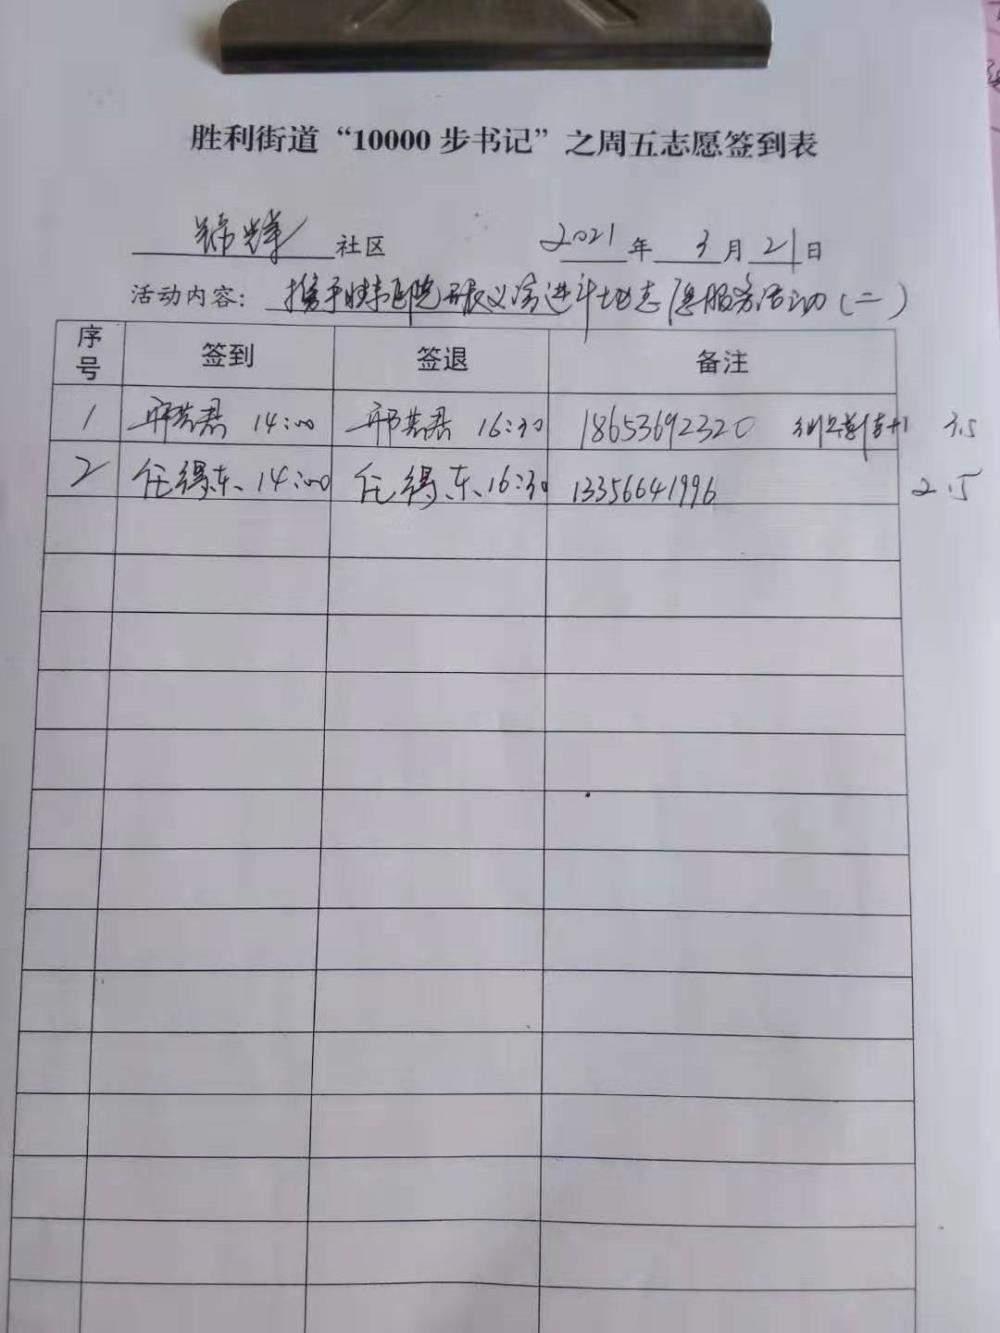 胜利街道“10000步书记”之周五志愿签到表
社区 2021年 3月 21日
活动内容: 携手 医院开展义诊进 志愿服务活动(二)
序号 签到 签退 备注
1 邢芸君 14:00 邢芸君 16:30 18653692320 3.5
2 任得东 14:00 任得东 16:30 13356641996 2.5